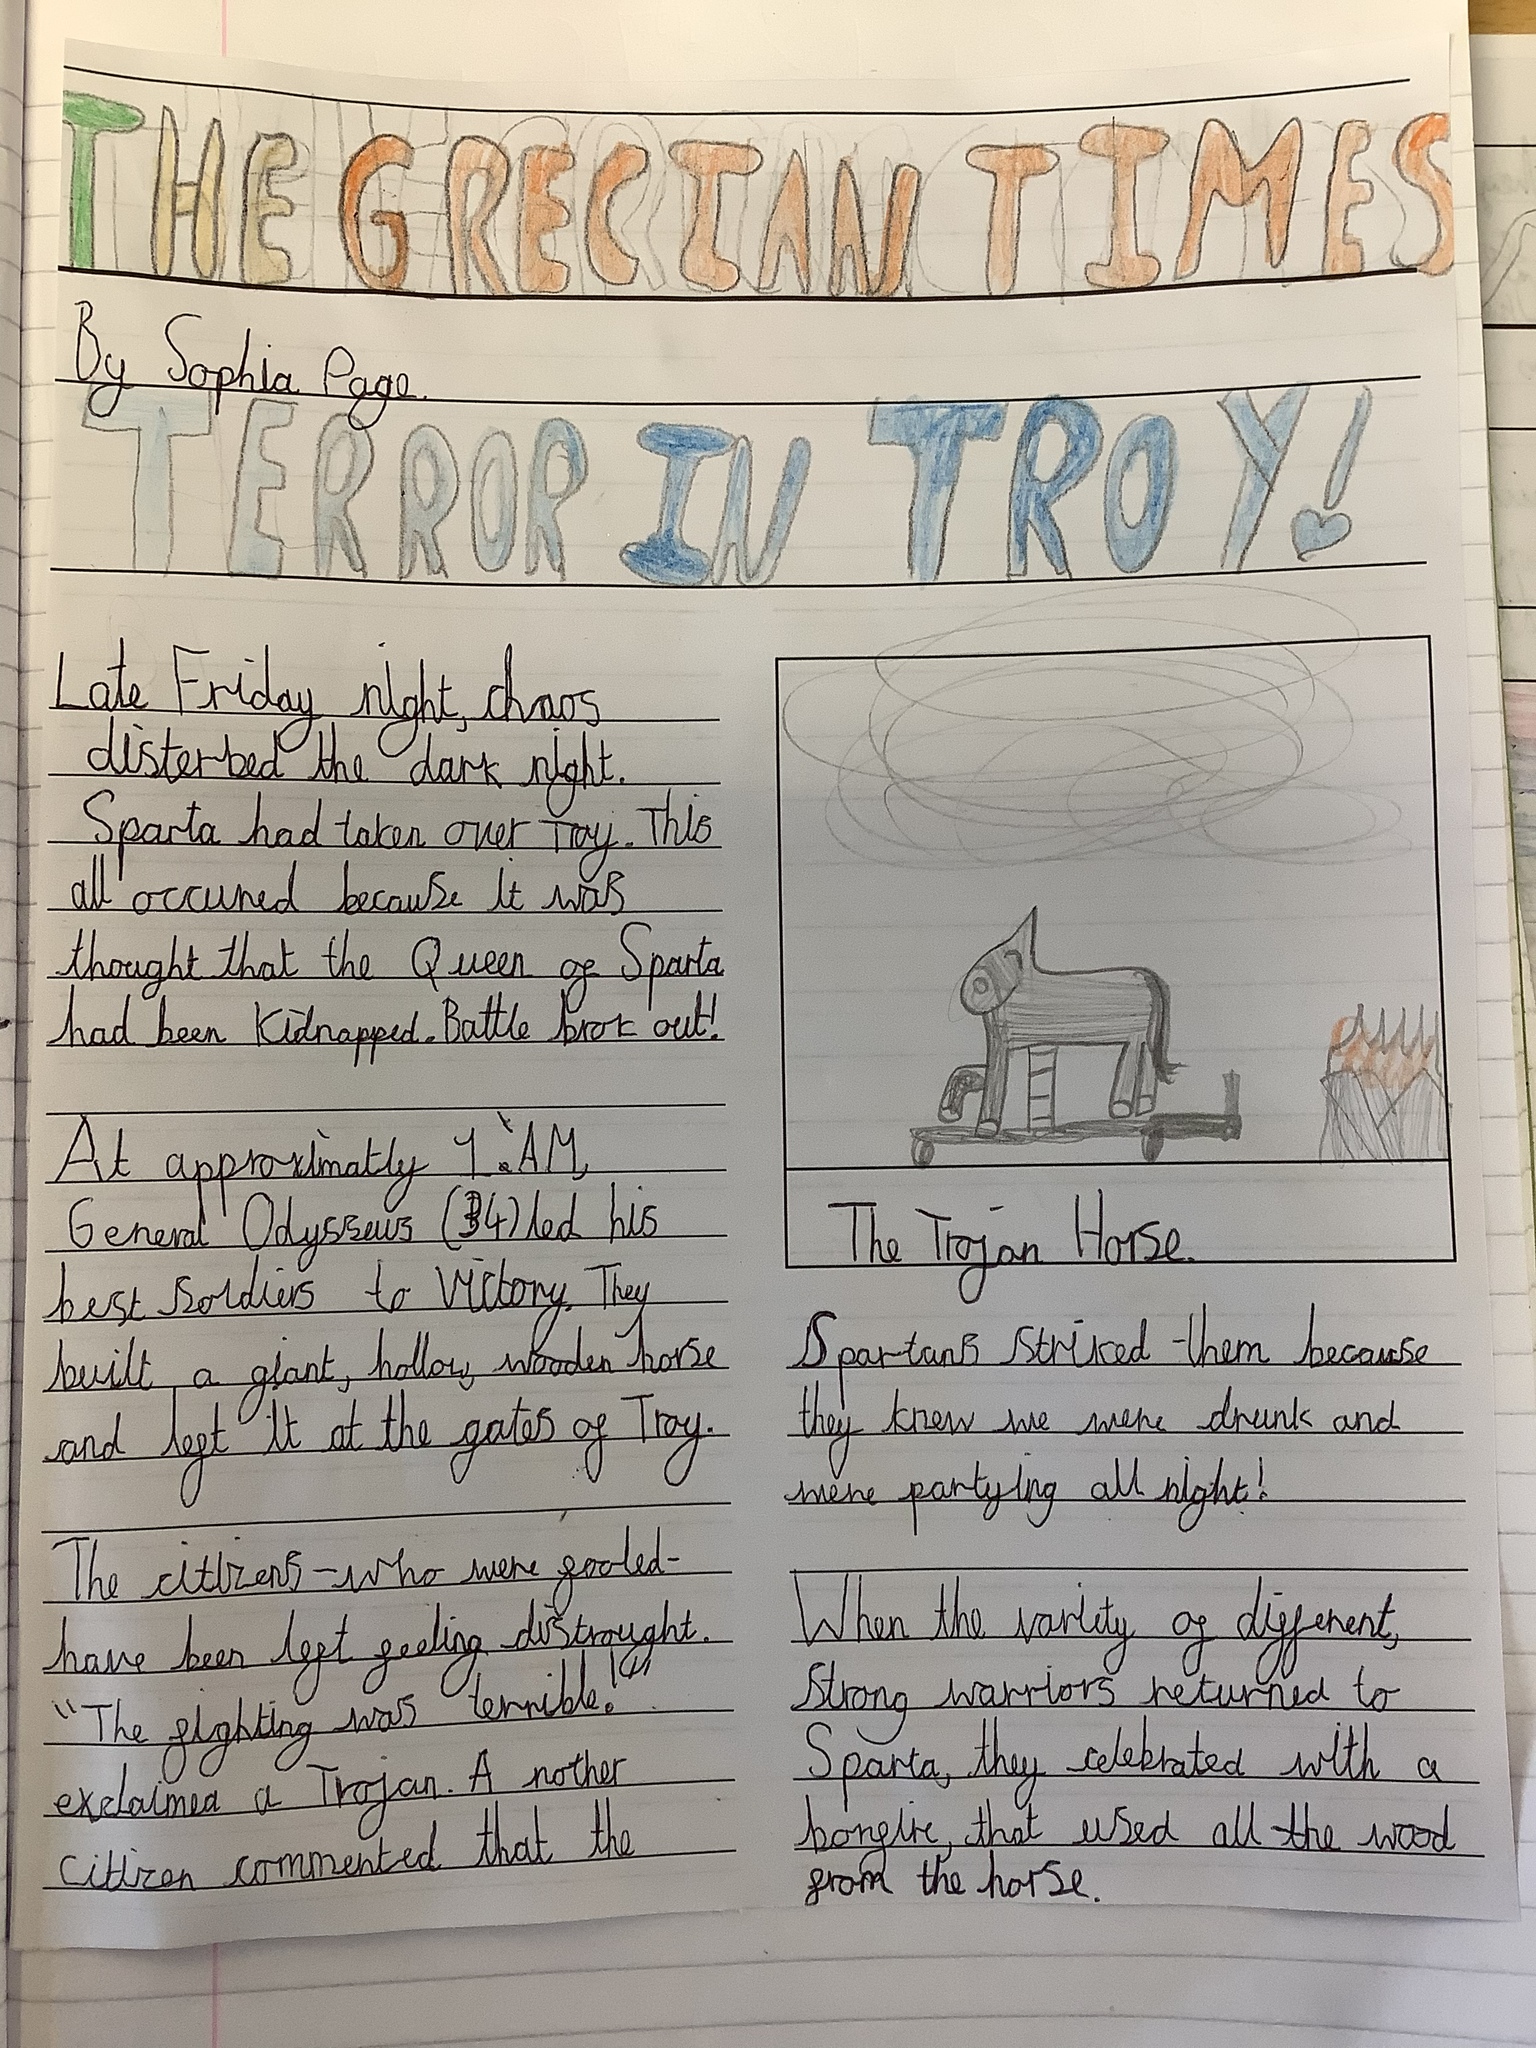 THE GRECIAN TIMES
By Sophia Page.
TERROR IN TROY!
Late Friday night, chaos
disterbed the dark night.
Sparta had taken over Troy. This
all occurred because it was
thought that the Queen of Sparta
had been Kidnapped. Battle brok out!
At approximatly 1:AM,
General Odysseus (34) led his
best soldiers to victory. They
built a giant, hollow, wooden horse
and left it at the gates of Troy.
The citizens-who were fooled-
have been left feeling distrought.
"The fighting was terrible!"
exclaimed a Trojan. A nother
citizen commented that the
The Trojan Horse.
Spartans striked them because
they knew we were drunk and
were partying all night!
When the variety of different,
strong warriors returned to
Sparta, they celebrated with a
bonfire, that used all the wood
from the horse.